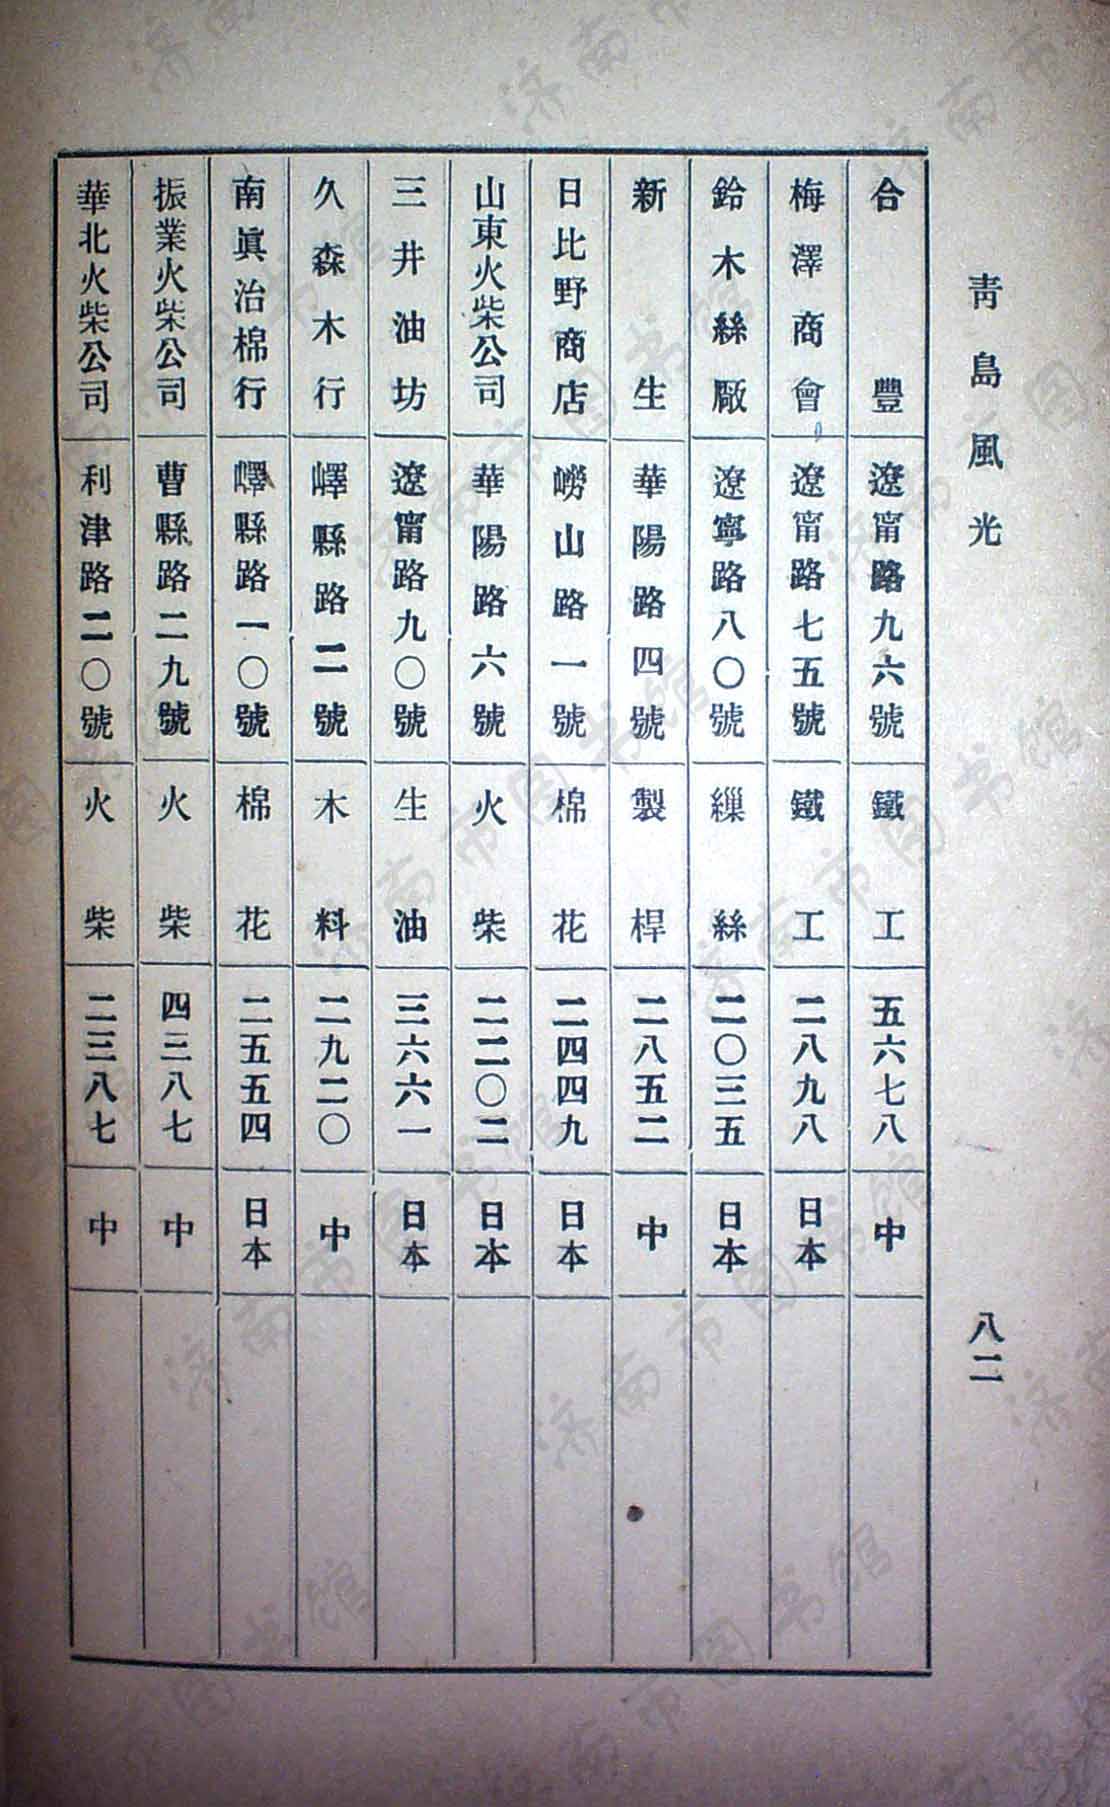 青島風光
八二
合豐 遼甯路九六號 鐵工 五六七八 中
梅澤商會 遼甯路七五號 鐵工 二八九八 日本
鈴木絲廠 遼寧路八〇號 繅絲 二〇三五 日本
新生 華陽路四號 製桿 二八五二 中
日比野商店 嶗山路一號 棉花 二四四九 日本
山東火柴公司 華陽路六號 火柴 二二〇二 日本
三井油坊 遼甯路九〇號 生油 三六六一 日本
久森木行 嶧縣路二號 木料 二九二〇 中
南眞治棉行 嶧縣路一〇號 棉花 二五五四 日本
振業火柴公司 曹縣路二九號 火柴 四三八七 中
華北火柴公司 利津路二〇號 火柴 二三八七 中
济南市图书馆